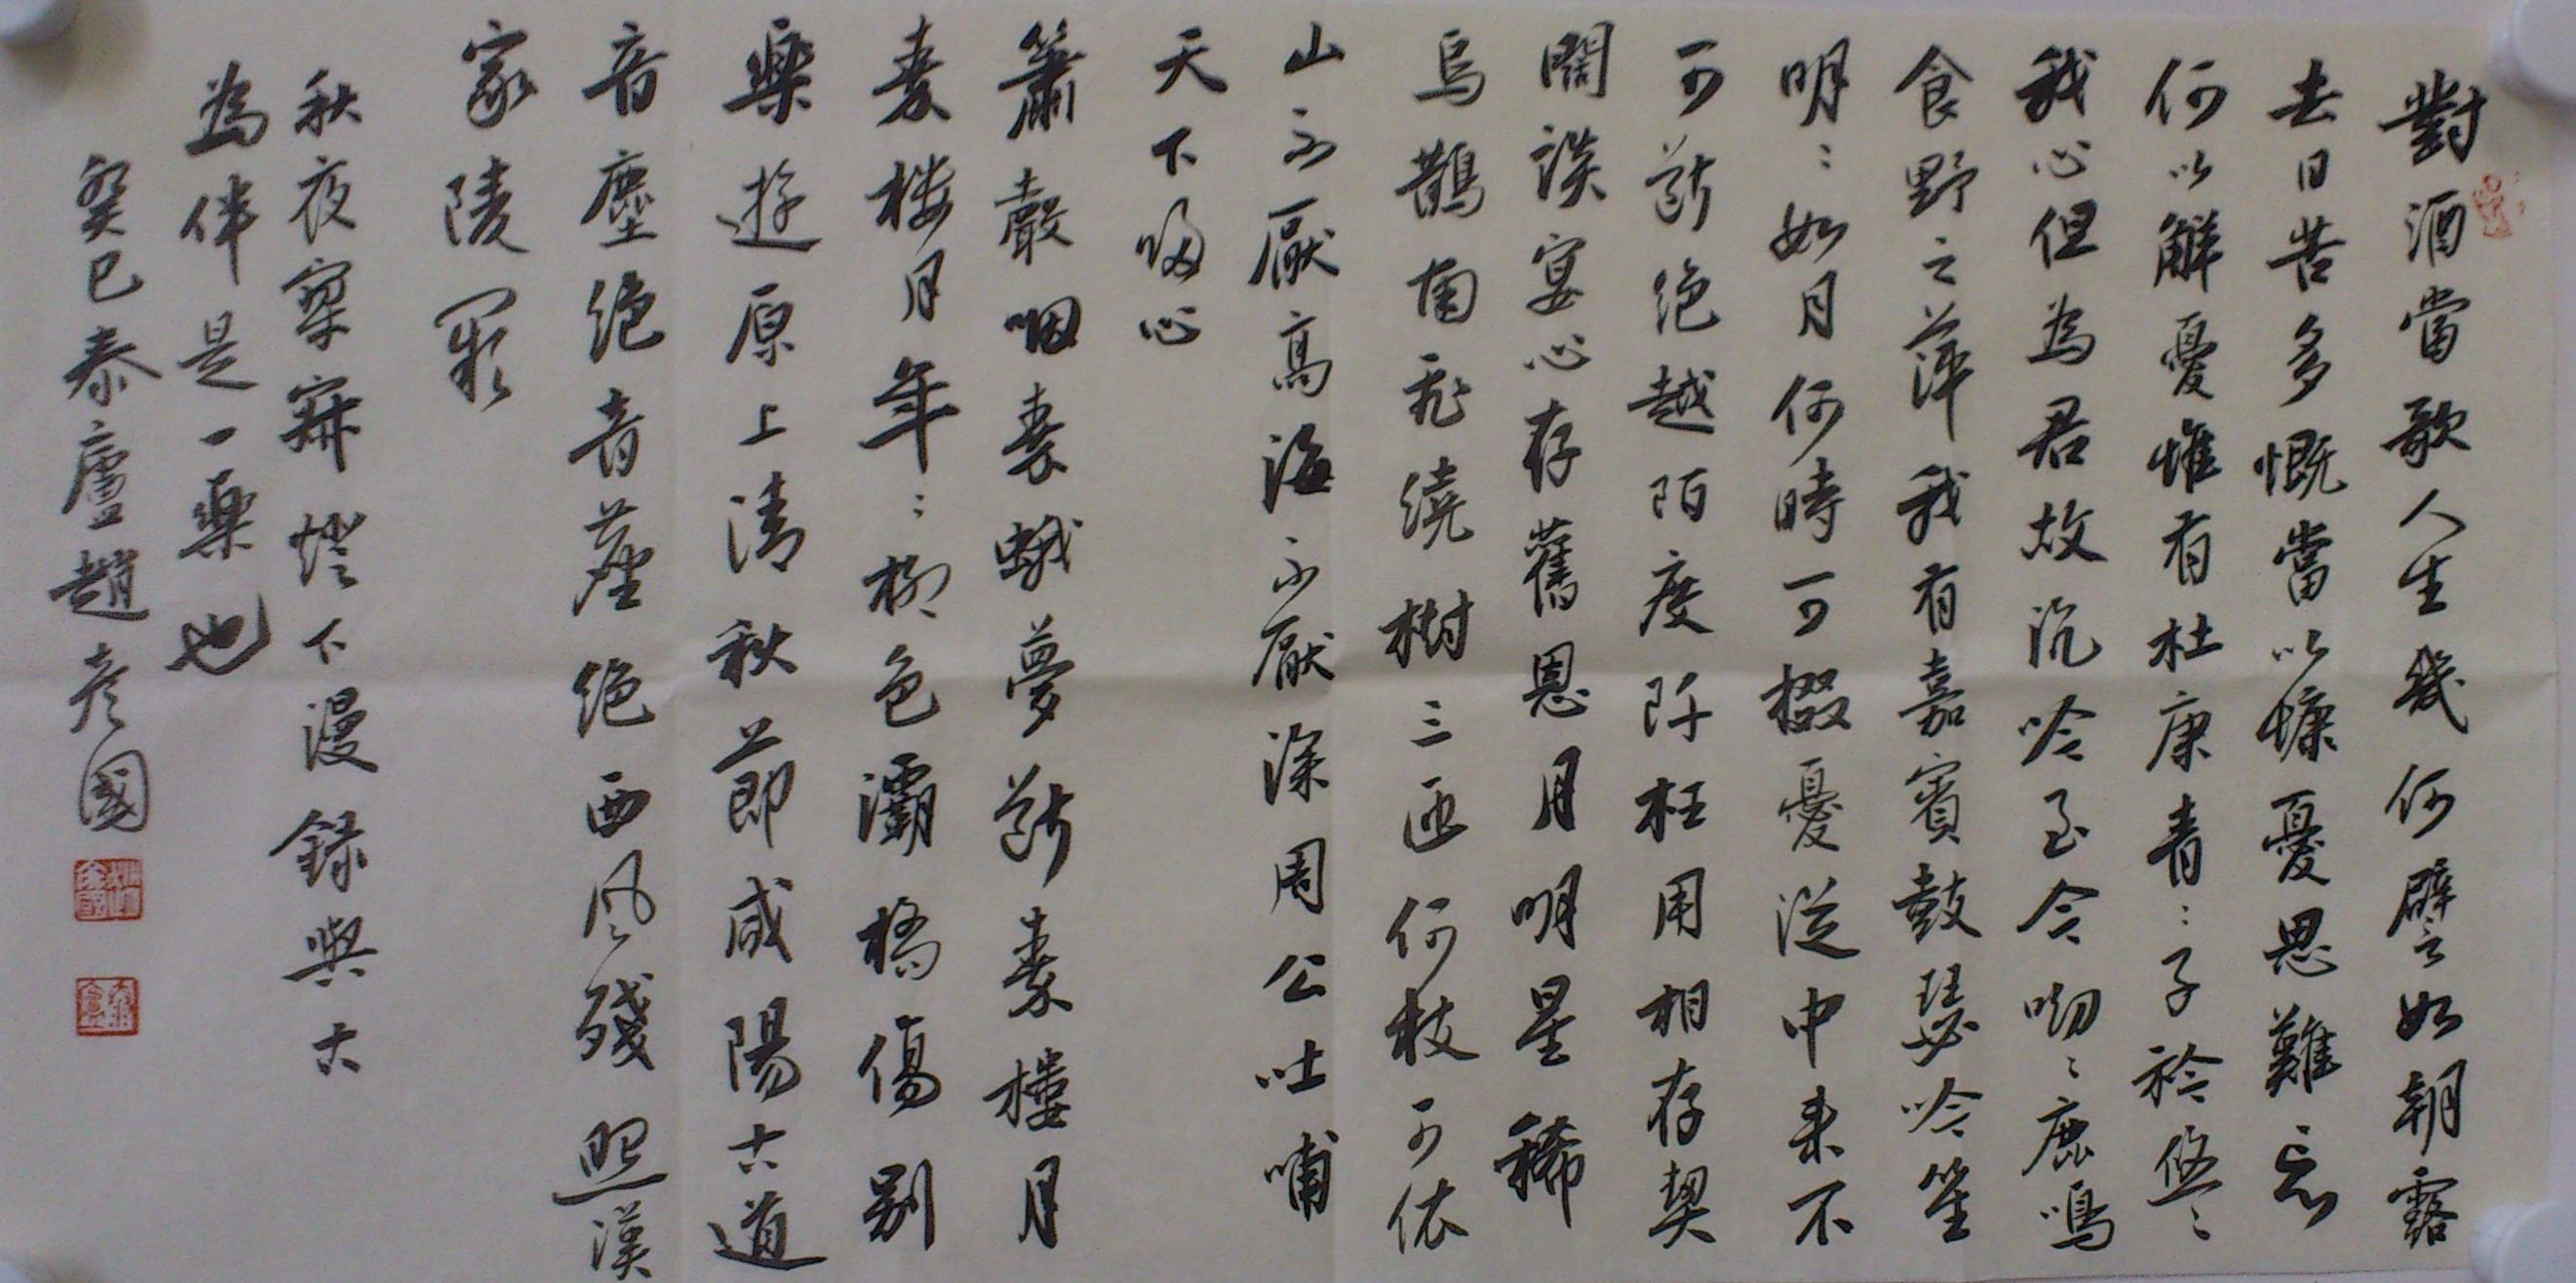 對酒當歌人生幾何譬如朝露
去日苦多慨當以慷憂思難忘
何以解憂惟有杜康青〻子衿悠〻
我心但為君故沉吟至今呦〻鹿鳴
食野之萍我有嘉賓鼓瑟吹笙
明〻如月何時可掇憂從中來不
可斷絕越陌度阡枉用相存契
闊談宴心存舊恩月明星稀
烏鵲南飛繞樹三匝何枝可依
山不厭高海不厭深周公吐哺
天下歸心
簫聲咽秦娥夢斷秦樓月
秦樓月年〻柳色灞橋傷別
樂遊原上清秋節咸陽古道
音塵絕音塵絕西風殘照漢
家陵闕
秋夜寂寥燈下漫錄與古
為伴是一樂也
癸巳泰廬趙彥國